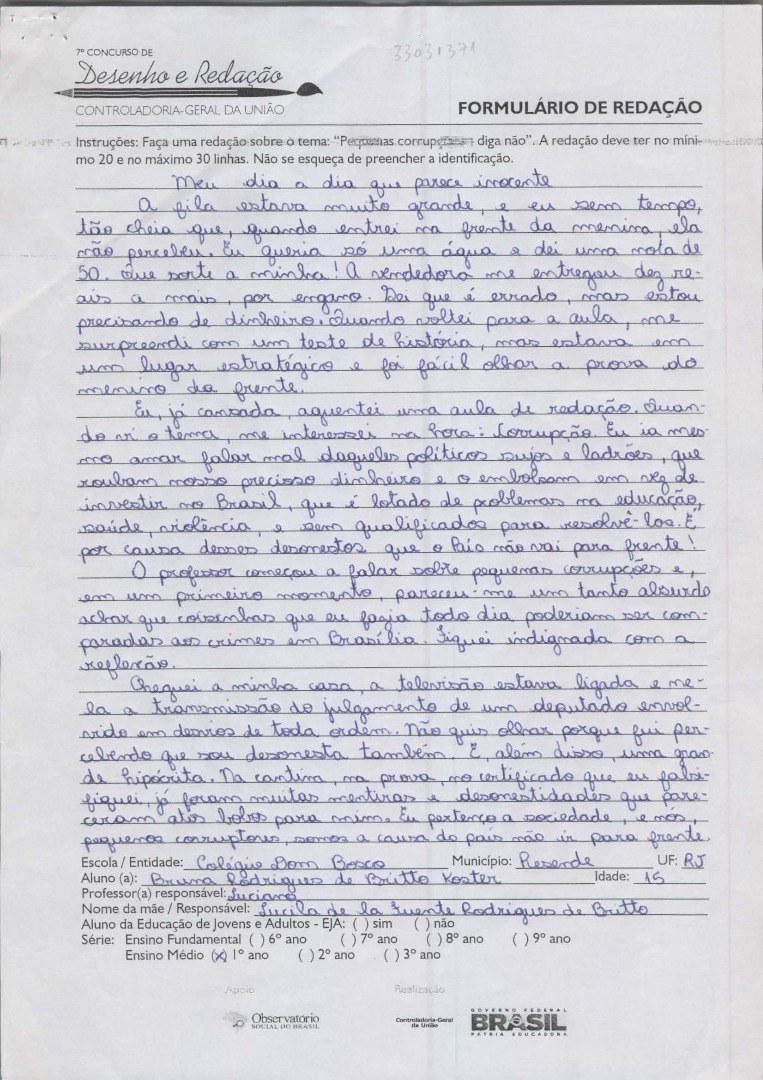 33031371
7º CONCURSO DE
Desenho e Redação
CONTROLADORIA-GERAL DA UNIÃO
FORMULÁRIO DE REDAÇÃO
Instruções: Faça uma redação sobre o tema: “Pequenas corrupções - diga não”. A redação deve ter no míni-
mo 20 e no máximo 30 linhas. Não se esqueça de preencher a identificação.
Meu dia a dia que parece inocente
A fila estava muito grande, e eu sem tempo,
tão cheia que, quando entrei na frente da menina, ela
não percebeu. Eu queria só uma água e dei uma nota de
50. Que sorte a minha! A vendedora me entregou dez re-
ais a mais, por engano. Sei que é errado, mas estou
precisando de dinheiro. Quando voltei para a aula, me
surpreendi com um teste de história, mas estava em
um lugar estratégico e foi fácil olhar a prova do
menino da frente.
Eu, já cansada, aguentei uma aula de redação. Quan-
do vi o tema, me interessei na hora: Corrupção. Eu ia mes-
mo amar falar mal daqueles políticos sujos e ladrões, que
roubam nosso precioso dinheiro e o embolsam em vez de
investir no Brasil, que é lotado de problemas na educação,
saúde, violência, e sem qualificados para resolvê-los. É
por causa desses desonestos que o País não vai para frente!
O professor começou a falar sobre pequenas corrupções e,
em um primeiro momento, pareceu-me um tanto absurdo
achar que coisinhas que eu fazia todo dia poderiam ser com-
paradas aos crimes em Brasília. Fiquei indignada com a
reflexão.
Cheguei a minha casa, a televisão estava ligada e ne-
la a transmissão do julgamento de um deputado envol-
vido em desvios de toda ordem. Não quis olhar porque fui per-
cebendo que sou desonesta também. E, além disso, uma gran-
de hipócrita. Na cantina, na prova, no certificado que eu falsi-
fiquei, já foram muitas mentiras e desonestidades que pare-
ceram atos bobos para mim. Eu pertenço a sociedade, e nós,
pequenos corruptores, somos a causa do país não ir para frente.
Escola / Entidade: Colégio Dom Bosco Município: Resende UF: RJ
Aluno (a): Bruna Rodrigues de Britto Koster Idade: 15
Professor(a) responsável: Luciano
Nome da mãe / Responsável: Lucila de la Fuente Rodrigues de Britto
Aluno da Educação de Jovens e Adultos - EJA: ( ) sim ( ) não
Série: Ensino Fundamental ( ) 6º ano ( ) 7º ano ( ) 8º ano ( ) 9º ano
Ensino Médio (x) 1º ano ( ) 2º ano ( ) 3º ano
Apoio Realização
Observatório
SOCIAL DO BRASIL
Controladoria-Geral
da União
GOVERNO FEDERAL
BRASIL
PÁTRIA EDUCADORA